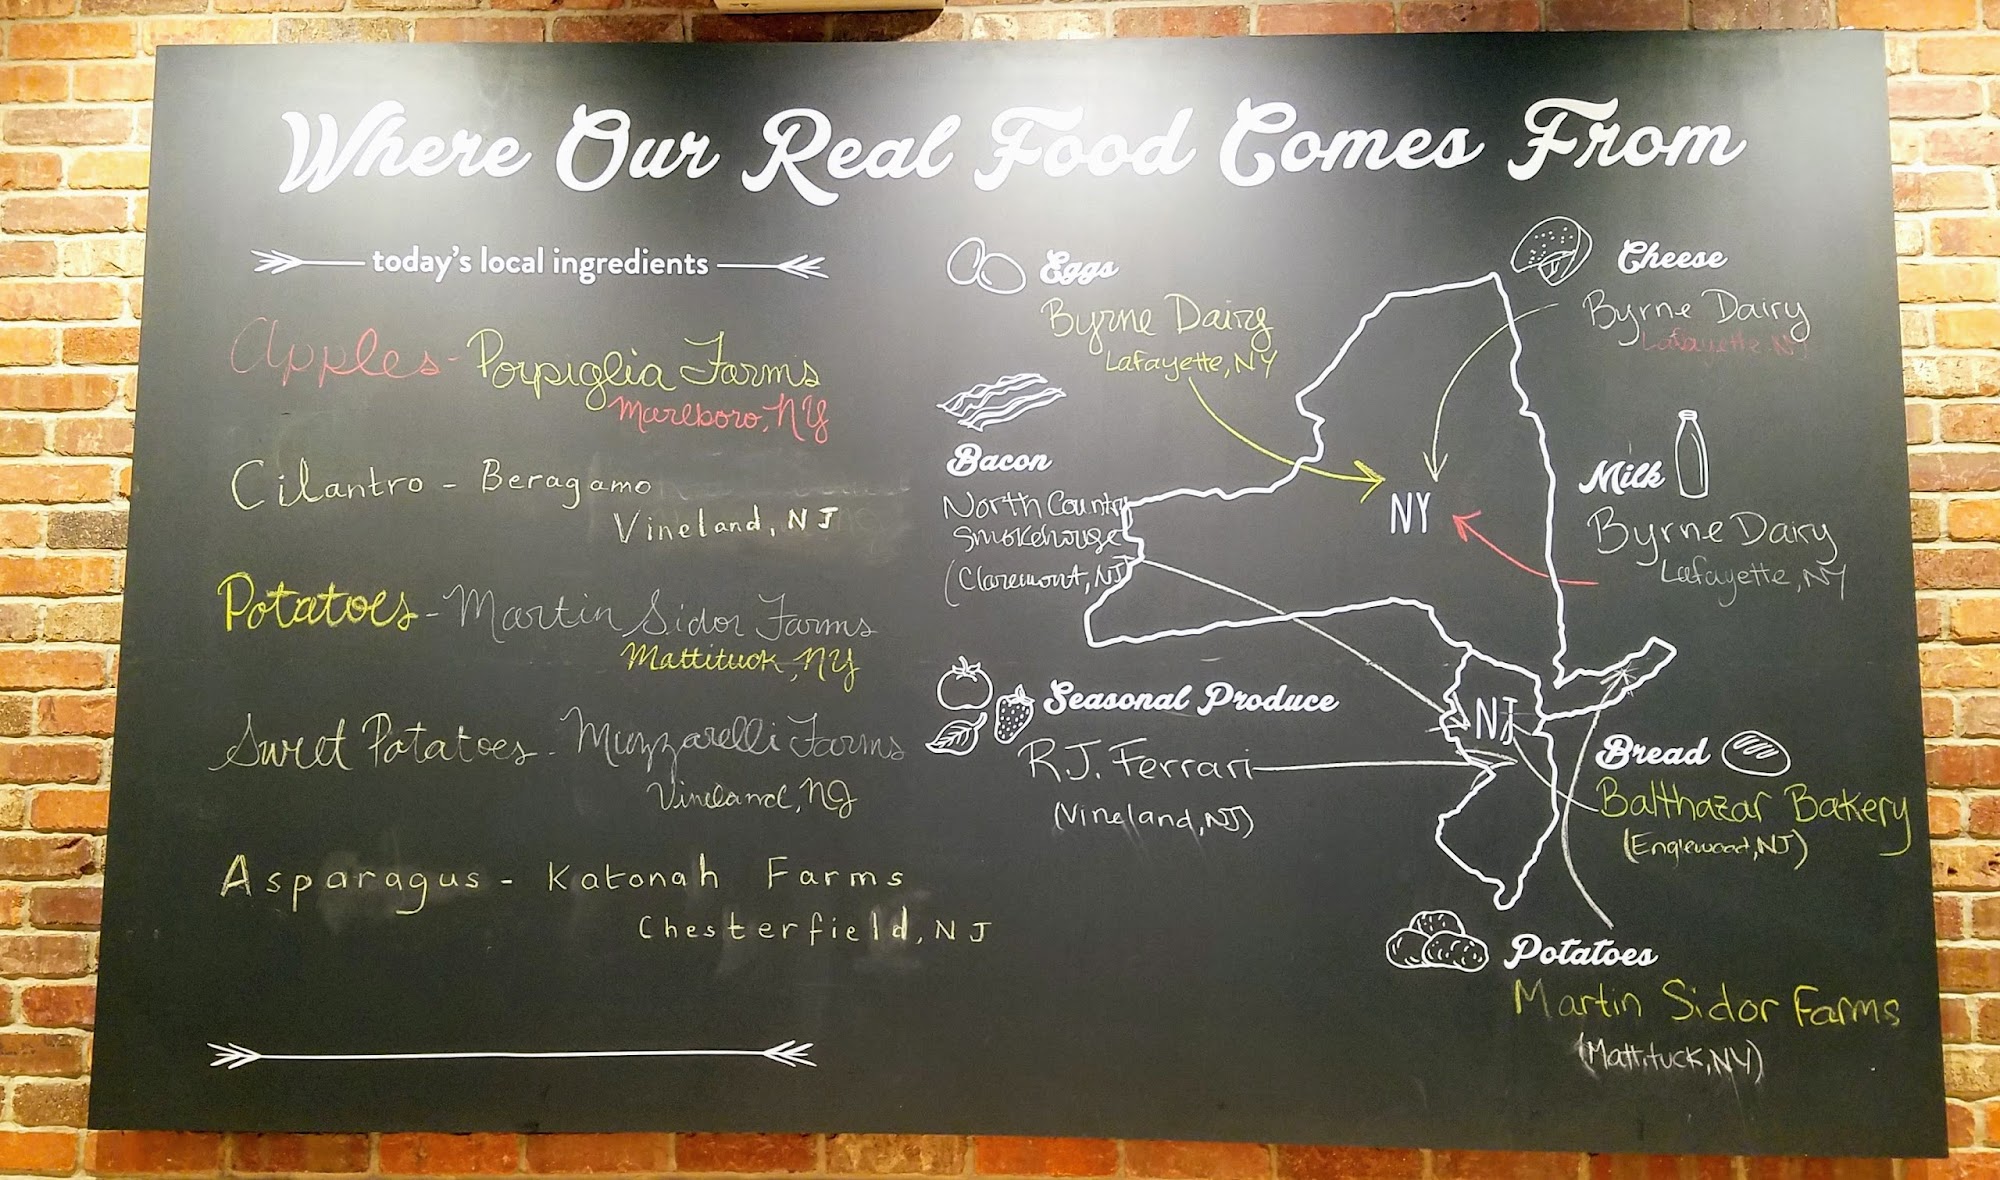 Where Our Real Food Comes From
today's local ingredients
Apples - Porpiglia Farms
Marlboro, NY
Cilantro - Beragamo
Vineland, NJ
Potatoes - Martin Sidor Farms
Mattituck, NY
Sweet Potatoes - Muzzarelli Farms
Vineland, NJ
Asparagus - Katonah Farms
Chesterfield, NJ
Eggs
Byrne Dairy
Lafayette, NY
Bacon
North Country
Smokehouse
(Claremont, NJ
Seasonal Produce
R.J. Ferrari
(Vineland, NJ)
NY
NJ
Cheese
Byrne Dairy
Lafayette, NJ
Milk
Byrne Dairy
Lafayette, NY
Bread
Balthazar Bakery
(Englewood, NJ)
Potatoes
Martin Sidor Farms
(Mattituck, NY)